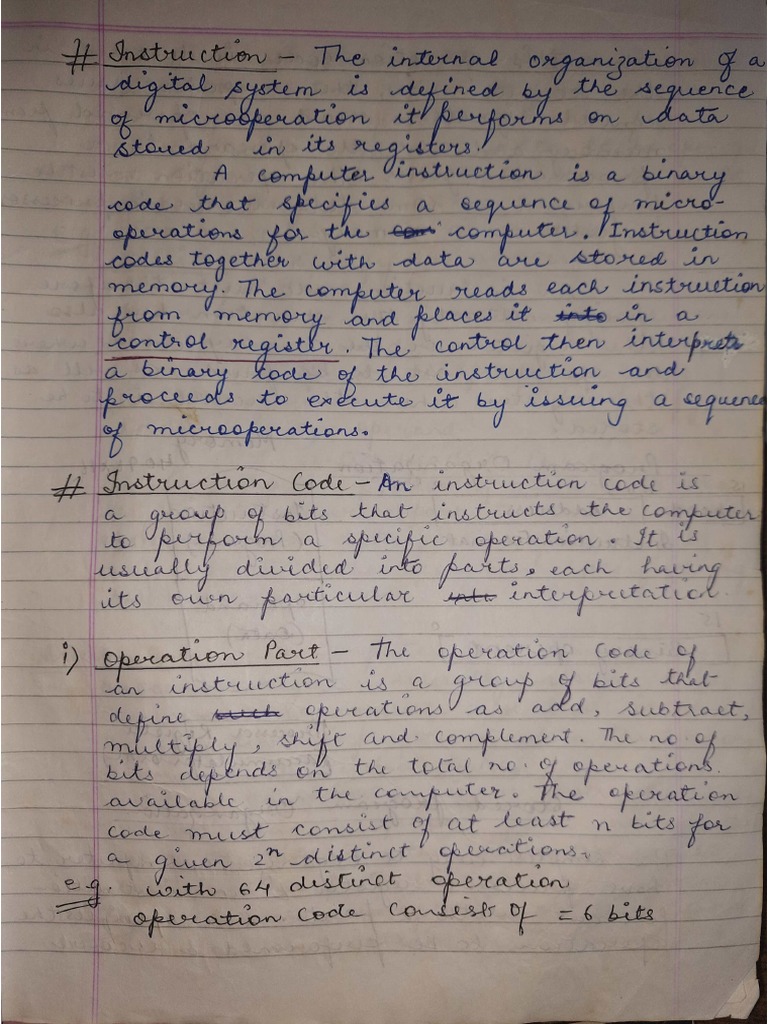 # Instruction - The internal organization of a
digital system is defined by the sequence
of microoperation it performs on data
stored in its registers.
A computer instruction is a binary
code that specifies a sequence of micro-
operations for the computer. Instruction
codes together with data are stored in
memory. The computer reads each instruction
from memory and places it into in a
control register. The control then interprets
a binary code of the instruction and
proceeds to execute it by issuing a sequence
of microoperations.
# Instruction Code - An instruction code is
a group of bits that instructs the computer
to perform a specific operation. It is
usually divided into parts, each having
its own particular interpretation.
i) Operation Part - The operation code of
an instruction is a group of bits that
define such operations as add, subtract,
multiply, shift and complement. The no. of
bits depends on the total no. of operations.
available in the computer. The operation
code must consist of at least n bits for
a given 2ⁿ distinct operations.
e.g. with 64 distinct operation
operation code consists of = 6 bits